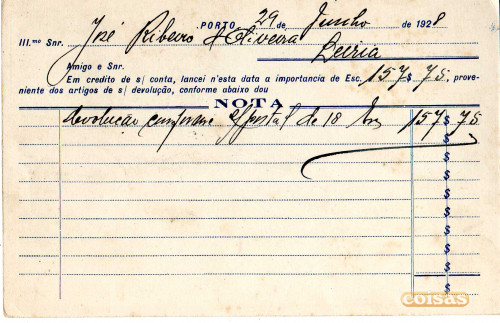 PORTO, 29 de Junho de 1928
Ill.mo Snr. José Ribeiro d'Oliveira
Leiria
Amigo e Snr.
Em credito de s/ conta, lancei n'esta data a importancia de Esc. 157$75; prove-
niente dos artigos de s/ devolução, conforme abaixo dou
NOTA
devolução conforme postal de 18 157 $ 75
$
$
$
$
$
$
$
$
$
coisas